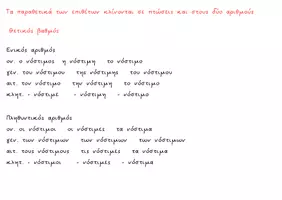 Τα παραθετικά των επιθέτων κλίνονται σε πτώσεις και στους δύο αριθμούς
Θετικός βαθμός
Ενικός αριθμός
ον. ο νόστιμος η νόστιμη το νόστιμο
γεν. του νόστιμου της νόστιμης του νόστιμου
αιτ. τον νόστιμο την νόστιμη το νόστιμο
κλητ. - νόστιμε - νόστιμη - νόστιμο
Πληθυντικός αριθμός
ον. οι νόστιμοι οι νόστιμες τα νόστιμα
γεν. των νόστιμων των νόστιμων των νόστιμων
αιτ. τους νόστιμους τις νόστιμες τα νόστιμα
κλητ. - νόστιμοι - νόστιμες - νόστιμα